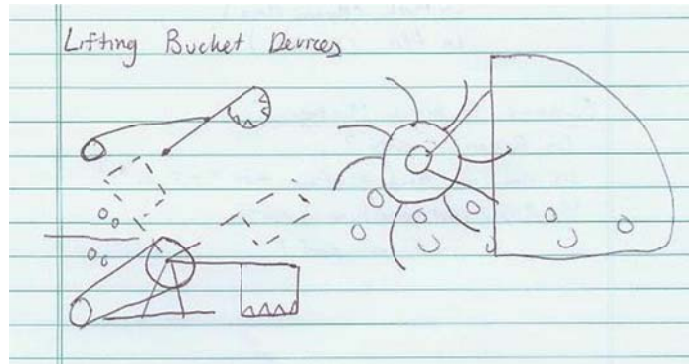 Lifting Bucket Devices